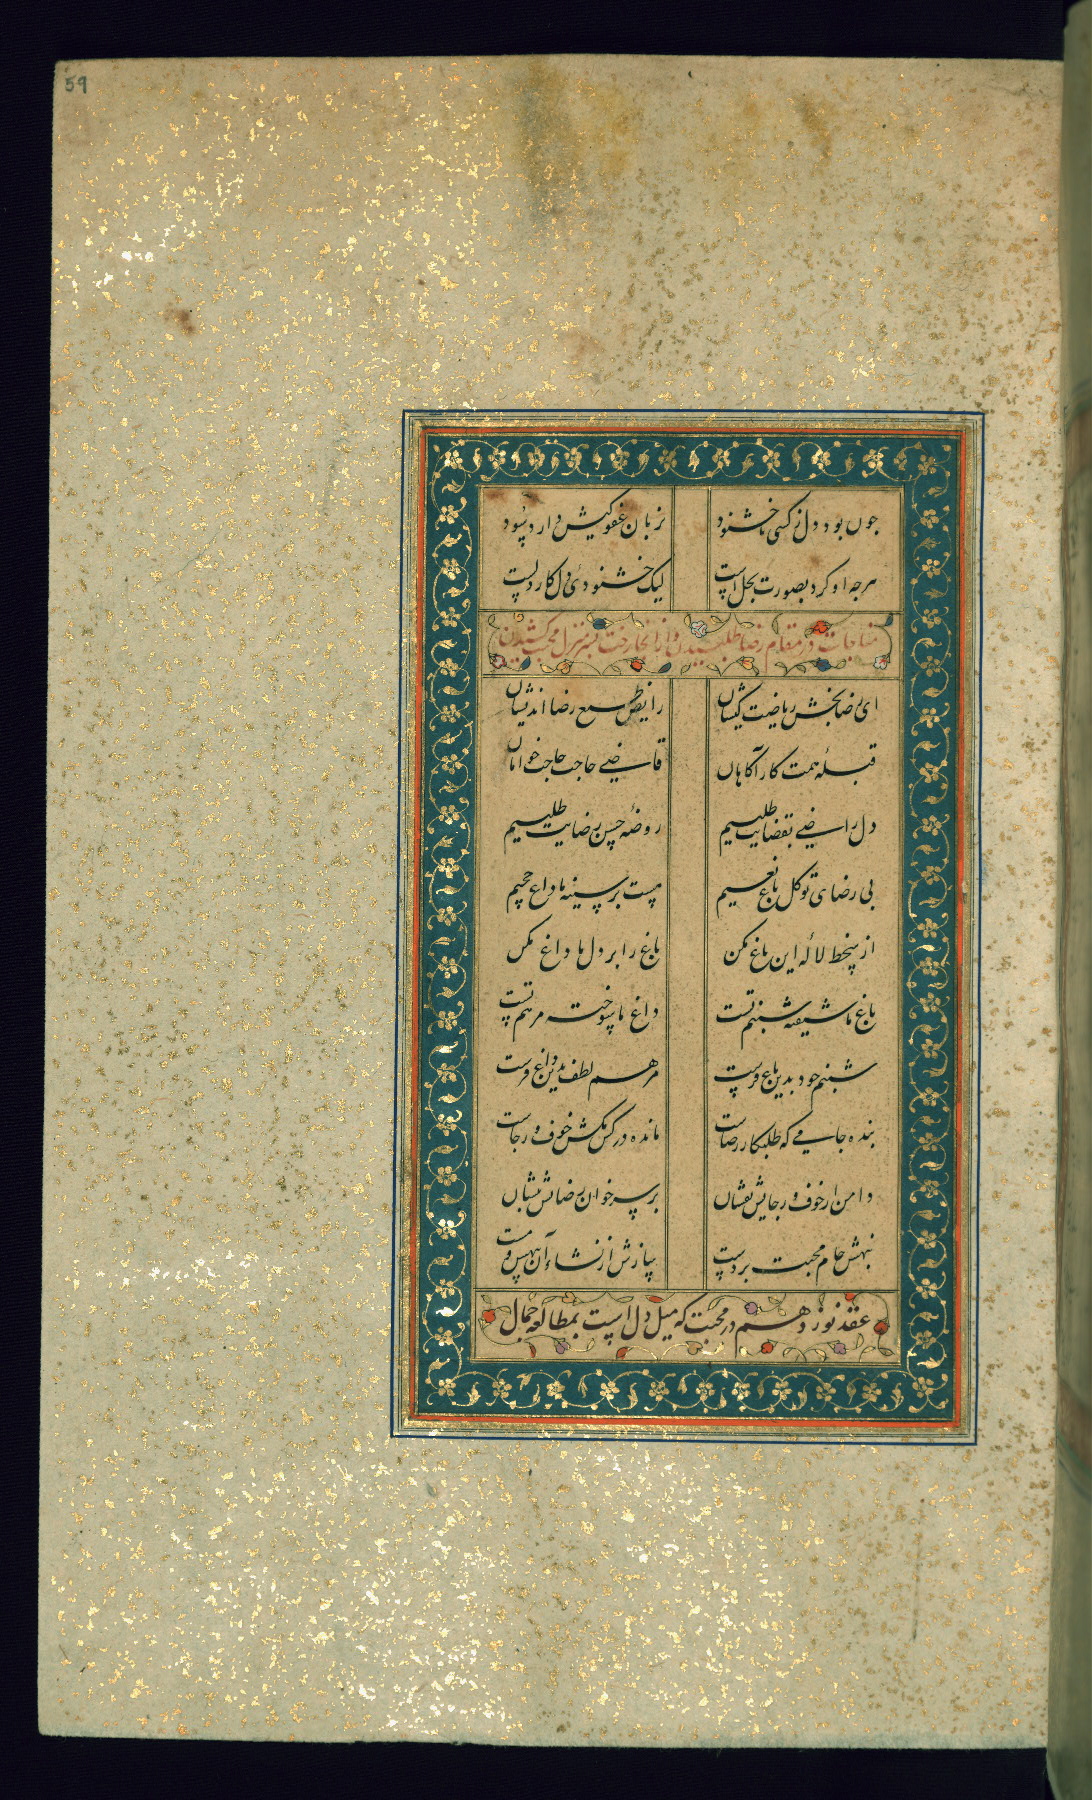 59
چون بود دل ز کسی ناخشنود زبان عفو کیش دارد سود
هرچه او کرد بصورت بحل است لیک خشنودی دل کار دلست
مناجات در مقام رضا طلبیدن و از آنجا رخت بسرمنزل محبت کشیدن
ای رضابخش ریاضت کیشان رایض طبع رضا اندیشان
قبلهٔ همت کار آگاهان قاضی حاجت حاجت خواهان
دل راضی بقضایت طلبیم روضهٔ حسن رضایت طلبیم
بی رضای تو گل باغ نعیم هست بر سینه ما داغ جحیم
از سخط لاله این باغ مکن باغ را بر دل ما داغ مکن
باغ ما شیفته شبنم تست داغ ما سوخته مرهم تست
شبنم جود بدین باغ فرست مرهم لطف بدین داغ فرست
بنده جامی که طلبکار رضاست مانده در کش مکش خوف و رجاست
دامن از خوف و رجایش بفشان بر سر خوان رضایش بنشان
بنهش جام محبت بر دست سازش از نشاء آن بیهش و مست
عقد نوزدهم در محبت که میل دل است بمطالعه جمال